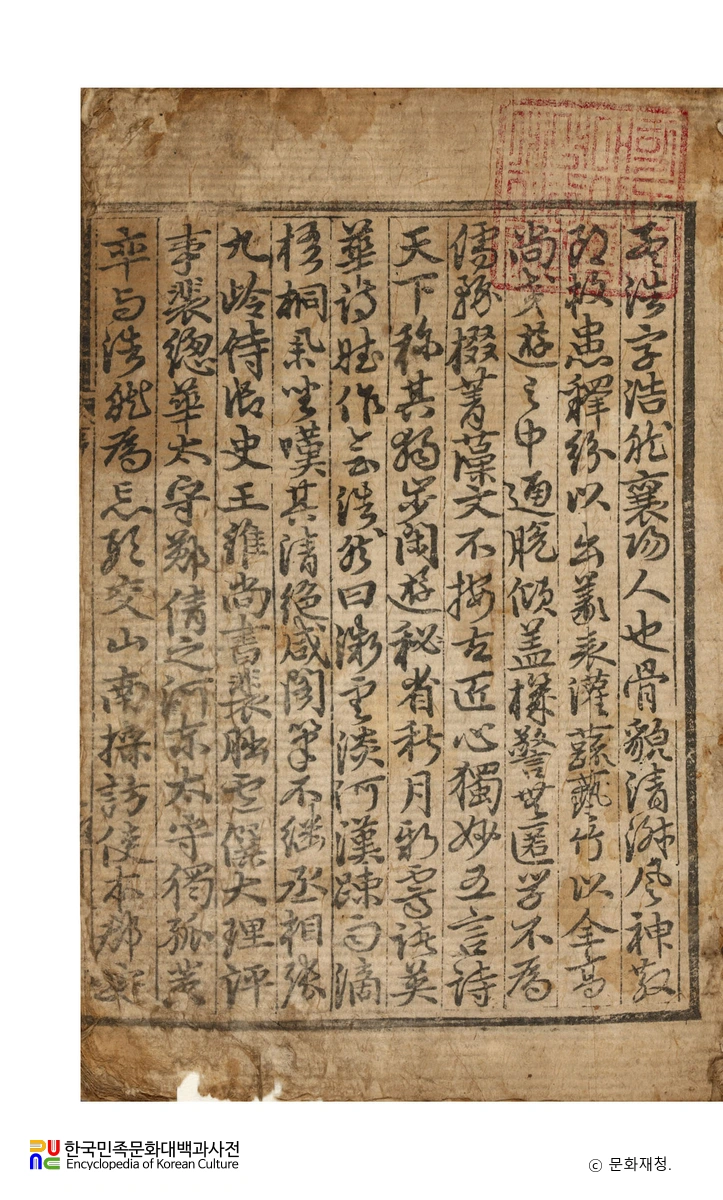 孟浩字浩然襄陽人也骨貌清淑風神散
朗救患釋紛以出義表灌蔬藝竹以全高
尚交遊之中通脫傾盖機警無匿学不為
儒務掇菁藻文不按古匠心獨妙五言詩
天下称其独步閑遊秘省秋月新霽諸英
華詩賦作会浩然曰微雲淡河漢踈雨滴
梧桐舉坐嘆其清絕咸閣筆不继丞相張
九岭侍御史王維尚書裴朏盧僎大理評
事裴總華太守鄭倩之河東太守獨孤策
率与浩然為忘形交山南採訪使本郡
한국민족문화대백과사전
Encyclopedia of Korean Culture
ⓒ 문화재청.